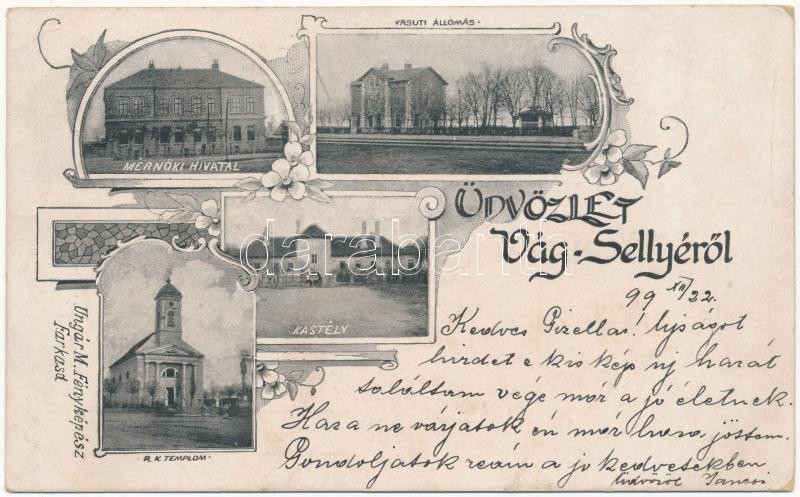 VASUTI ÁLLOMÁS.
MÉRNÖKI HIVATAL
ÜDVÖZLET
Vág-Sellyéről
KASTÉLY
R. K. TEMPLOM.
Ungár M. Fényképész
Farkasd
darabanth
99 XII/22.
Kedves Gizella! Ujságot
hirdet e kis kép uj hazát
találtam vége már a jó életnek.
Haza ne várjatok én már haza jöttem.
Gondoljatok reám a jo kedvetekben
Üdvözöl Jancsi